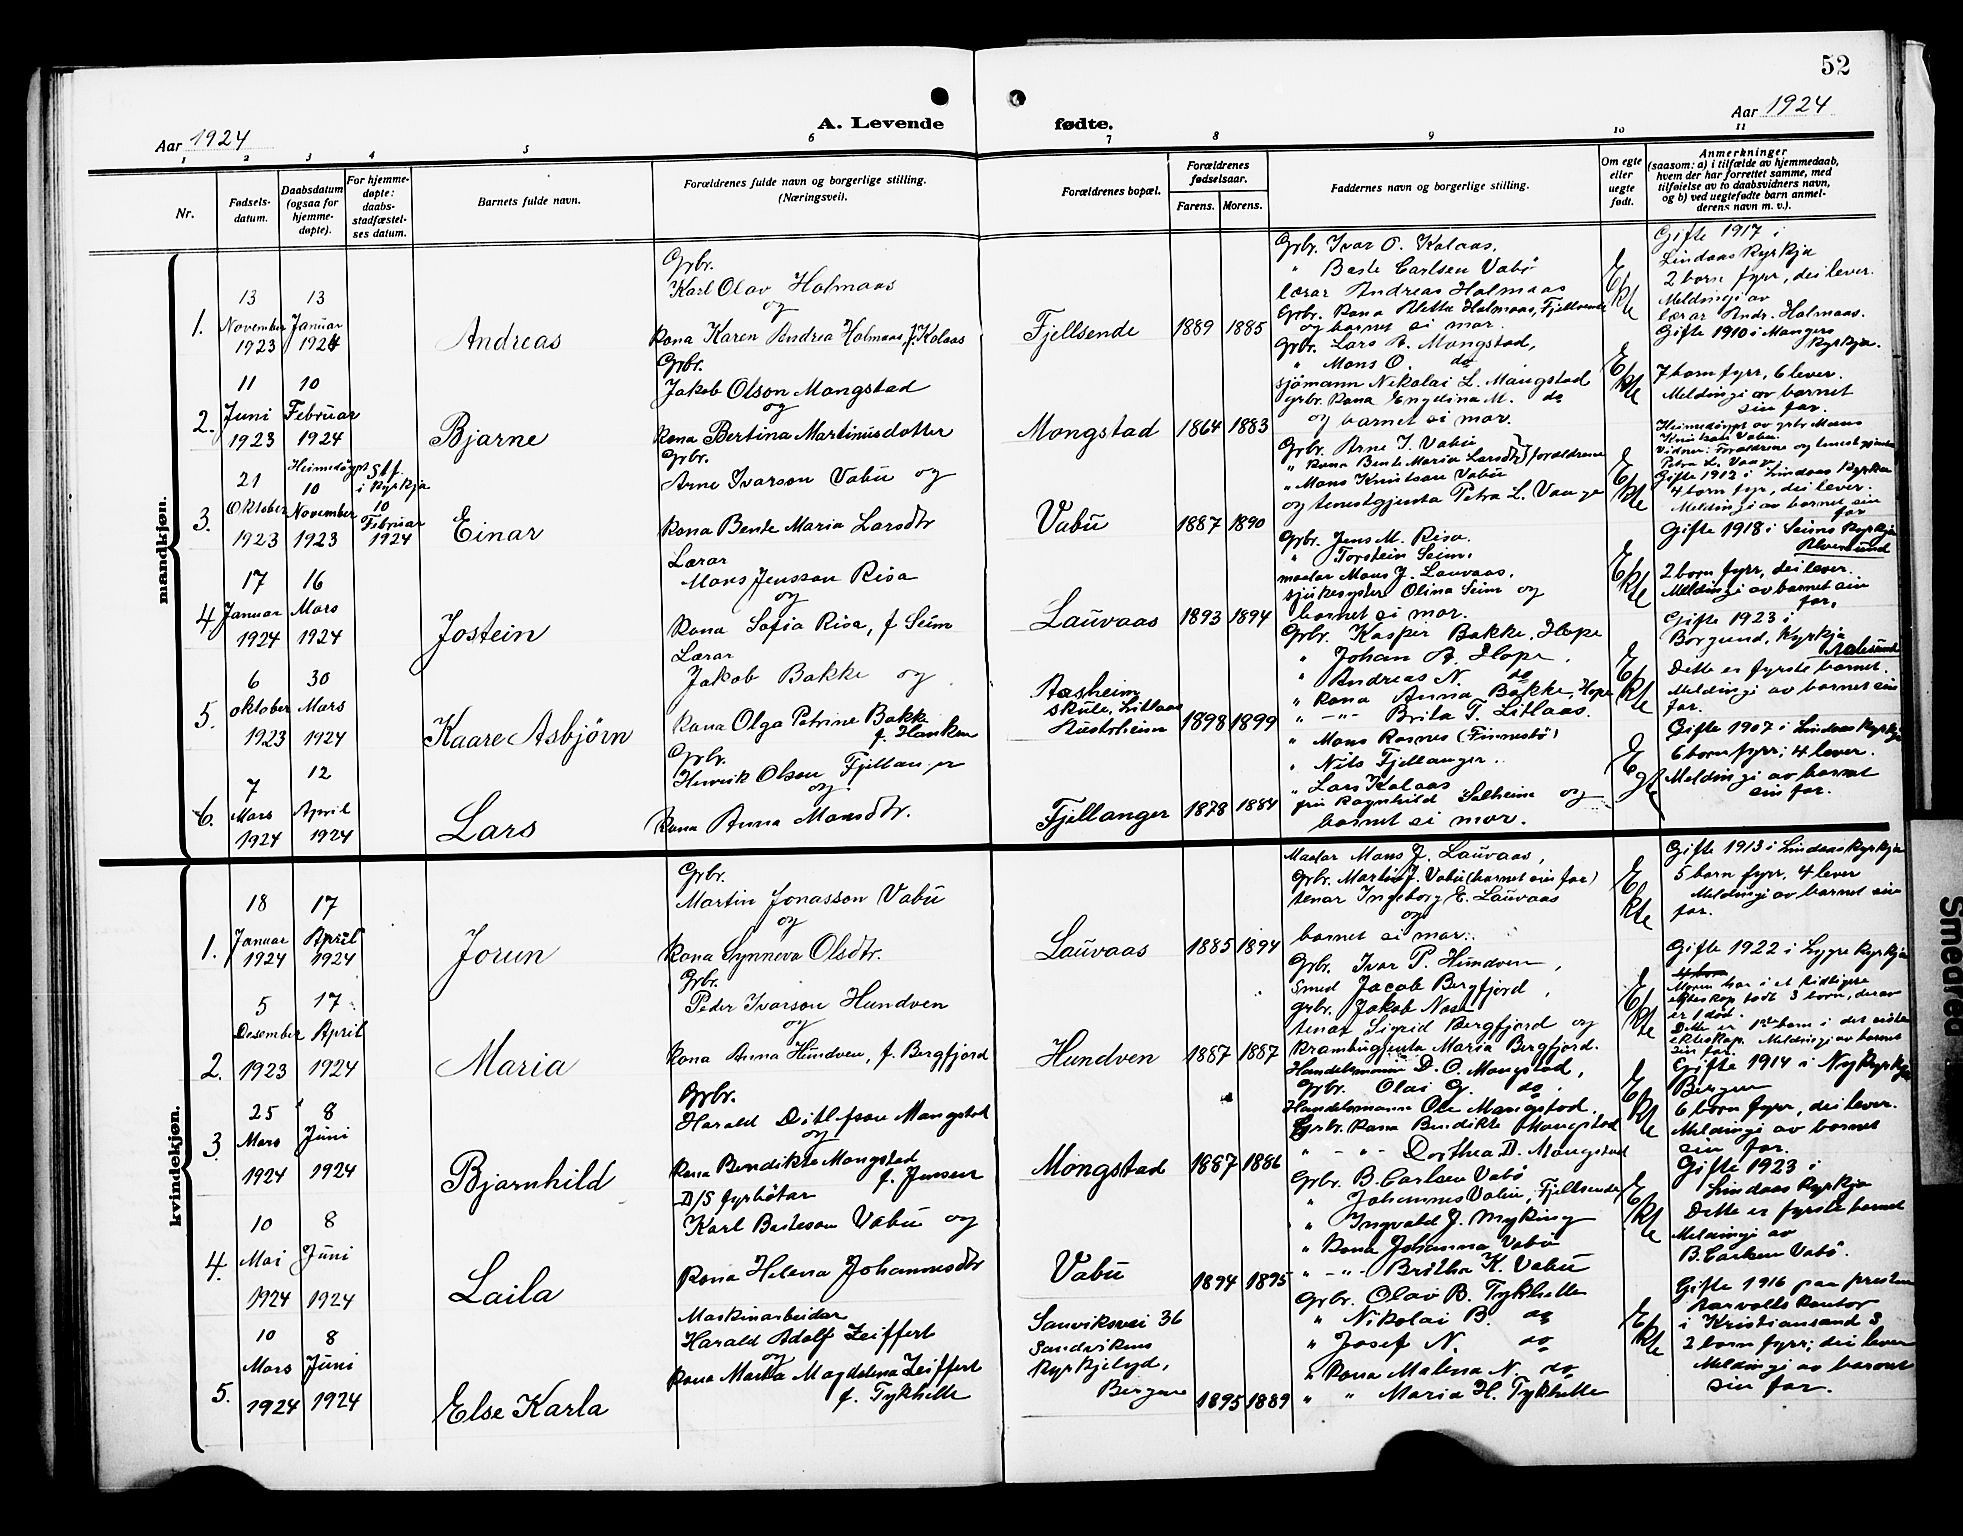 52
Aar 1924
A. Levende fødte.
Aar 1924
1 2 3 4 5 6 7 8 9 10 11
Nr.
Fødsels-
datum.
Daabsdatum
(ogsaa for
hjemme-
døpte).
For hjemme-
døpte:
daabs-
stadfæstel-
ses datum.
Barnets fulde navn.
Forældrenes fulde navn og borgerlige stilling.
(Næringsvei).
Forældrenes bopæl.
Forældrenes
fødselsaar.
Farens. Morens.
Faddernes navn og borgerlige stilling.
Om egte
eller
uegte
født.
Anmerkninger
(saasom: a) i tilfælde av hjemmedaab,
hvem der har forrettet samme, med
tilføielse av to daabsvidners navn,
og b) ved uegtefødte barn anmel-
derens navn m. v.).
mandkjøn.
1.
13
November
1923
13
Januar
1924
Andreas
Grbr.
Karl Olav Holmaas
og
Kona Karen Andrea Holmaas, f. Kolaas
Fjellsende
1889 1885
Grbr. Ivar O. Kolaas,
" Baste Carlsen Vabø
lærar Andreas Holmaas
Grbr. Kona Aletta Holmaas, Fjellsende
og barnet si mor.
Ekte
Gifte 1917 i
Lindaas Kyrkja
2 born fyrr, dei lever.
Meldingi av
lærar Andr. Holmaas.
2.
11
Juni
1923
10
Februar
1924
Bjarne
Grbr.
Jakob Olson Mongstad
og
Kona Bertina Martinusdotter
Mongstad
1864 1883
Grbr. Lars A. Mongstad,
" Mons O. do
sjömann Nikolai L. Mongstad
grbr. Kona Engelina M. do
og barnet si mor.
Ekte
Gifte 1910 i Mangers
Kyrkja.
7 born fyrr, 6 lever.
Meldingi av barnet
sin far.
3.
21
Oktober
1923
Heimedøypt
10
November
1923
Stf.
i Kyrkja
10
Februar
1924
Einar
Grbr.
Arne Ivarson Vabü og
Kona Bente Maria Larsdtr
Vabü
1887 1890
Grbr. Arne I. Vabü
" Kona Bente Maria Larsdtr} foreldrene
" Mons Knutson Vabü
og tenestgjenta Petra L. Vaage
Ekte
Heimedöypt av grbr Mons
Knutson Vabü.
Vidner: Foreldrene og tenestgjenta
Petra L. Vaage.
Gifte 1912 i Lindaas Kyrkja
4 born fyr, dei lever.
Meldingi av barnet sin
far
4
17
Januar
1924
16
Mars
1924
Jostein
Lærar
Mons Jensson Risa
og
Kona Sofia Risa, f Seim
Lauvaas
1893 1894
Grbr. Jens M. Risa.
" Torstein Seim.
maalar Mons J. Lauvaas.
sjukesyster Olina Seim og
barnet si mor.
Ekte
Gifte 1918 i Seims Kyrkja
Alversund
2 born fyrr, dei lever.
Meldingi av barnet sin
far.
5.
6
Oktober
1923
30
Mars
1924
Kaare Asbjørn
Lærar
Jakob Bakke og
Kona Olga Petrine Bakke
f. Hanken
Aasheim
skule, Litlaas
Austrheim
1898 1899
Grbr. Kasper Bakke, Hope
" Johan A. Hope.
" Andreas N. do
" Kona Anna Bakke, Hope
" -"- Brita T. Litlaas.
Ekte
Gifte 1923 i
Borgund, Kyrkja
Aalesund
Dette er fyrste barnet.
Meldingi av barnet sin
far.
6.
7
Mars
1924
12
April
1924
Lars
Grbr.
Henrik Olson Fjellanger
og
Kona Anna Monsdtr.
Fjellanger
1878 1884
" Mons Rosnes (Finnesbø)
" Nils Fjellanger.
" Lars Kolaas
frü Ragnhild Solheim og
barnet si mor.
Egte
Gifte 1907 i Lindaas Kyrkja
6 born fyrr; 4 lever.
Meldingi av barnet
sin far.
kvindekjøn.
1.
18
Januar
1924
17
April
1924
Jorun
Grbr.
Martin Jonasson Vabü
og
Kona Synneva Olsdtr.
Lauvaas
1885 1894
Maalar Mons J. Lauvaas,
Grbr. Martin J. Vabü (barnet sin far)
tenar Ingeborg E. Lauvaas
og
barnet si mor.
Ekte
Gifte 1913 i Lindaas Kyrkja
5 born fyrr, 4 lever
Meldingi av barnet sin
far.
2.
5
Desember
1923
17
April
1924
Maria
Grbr.
Peder Ivarson Hundven
og
Kona Anna Hundven, f. Bergfjord
Hundven
1887 1887
Grbr. Ivar P. Hundven,
Smed Jacob Bergfjord,
Grbr. Jakob Nese
tenar Sigrid Bergfjord og
krambugjenta Maria Bergfjord.
Ekte
Gifte 1922 i Lygre Kyrkja
4 born
Moren har i et tidligere
ekteskap født 3 born, derav
er 1 død.
Dette er 1ste born i det siste
ekteskap. Meldingi av barnet
sin far.
3.
25
Mars
1924
8
Juni
1924
Bjarnhild
Grbr.
Harald Ditlefson Mongstad
og
Kona Bendikte Mongstad
f. Jensen
Mongstad
1887 1886
Handelsmann D. O. Mongstad,
Grbr. Olai G. do.
Handelsmann Ole Mongstad.
Grbr. Kona Bendikte Mongstad
" -"- Dorthea D. Mongstad
Ekte
Gifte 1914 i Nykyrkja
Bergen
6 born fyrr, dei lever.
Meldingi av barnet
sin far.
4.
10
Mai
1924
8
Juni
1924
Laila
D/S fyrbøtar
Karl Basteson Vabü og
Kona Helena Johannesdtr
Vabü
1894 1895
Grbr. B. Carlsen Vabø
" Johannes Vabü, Fjellsende
" Ingvald J. Myking
" Kona Johanna Vabø
" -"- Britha K. Vabü
Ekte
Gifte 1923 i
Lindaas Kyrkja
Dette er fyrste barnet
Meldingi av
B. Carlsen Vabø.
5.
10
Mars
1924
8
Juni
1924
Else Karla
Maskinarbeidar
Harald Adolf Zeiffert
og
Kona Marta Magdalena Zeiffert
f. Tykhelle
Sanviksvei 36
Sandvikens
Kyrkjelyd,
Bergen
1895 1889
Grbr. Olai B. Tykhelle
" Nikolai B. do
" Josef N. do
" Kona Malena N. do
" " Maria H. Tykhelle
Ekte
Gifte 1916 paa presten
Aarvolls kontor
i Kristiansand S,
2 born fyrr; dei lever
Meldingi av barnet
sin far.